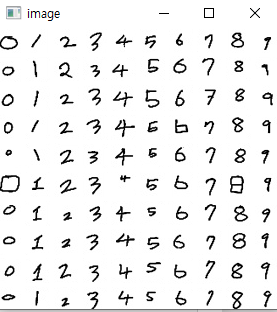 image
0 1 2 3 4 5 6 7 8 9
0 1 2 3 4 5 6 7 8 9
0 1 2 3 4 5 6 7 8 9
0 1 2 3 4 5 6 7 8 9
0 1 2 3 4 5 6 7 8 9
0 1 2 3 4 5 6 7 8 9
0 1 2 3 4 5 6 7 8 9
0 1 2 3 4 5 6 7 8 9
0 1 2 3 4 5 6 7 8 9
0 1 2 3 4 5 6 7 8 9